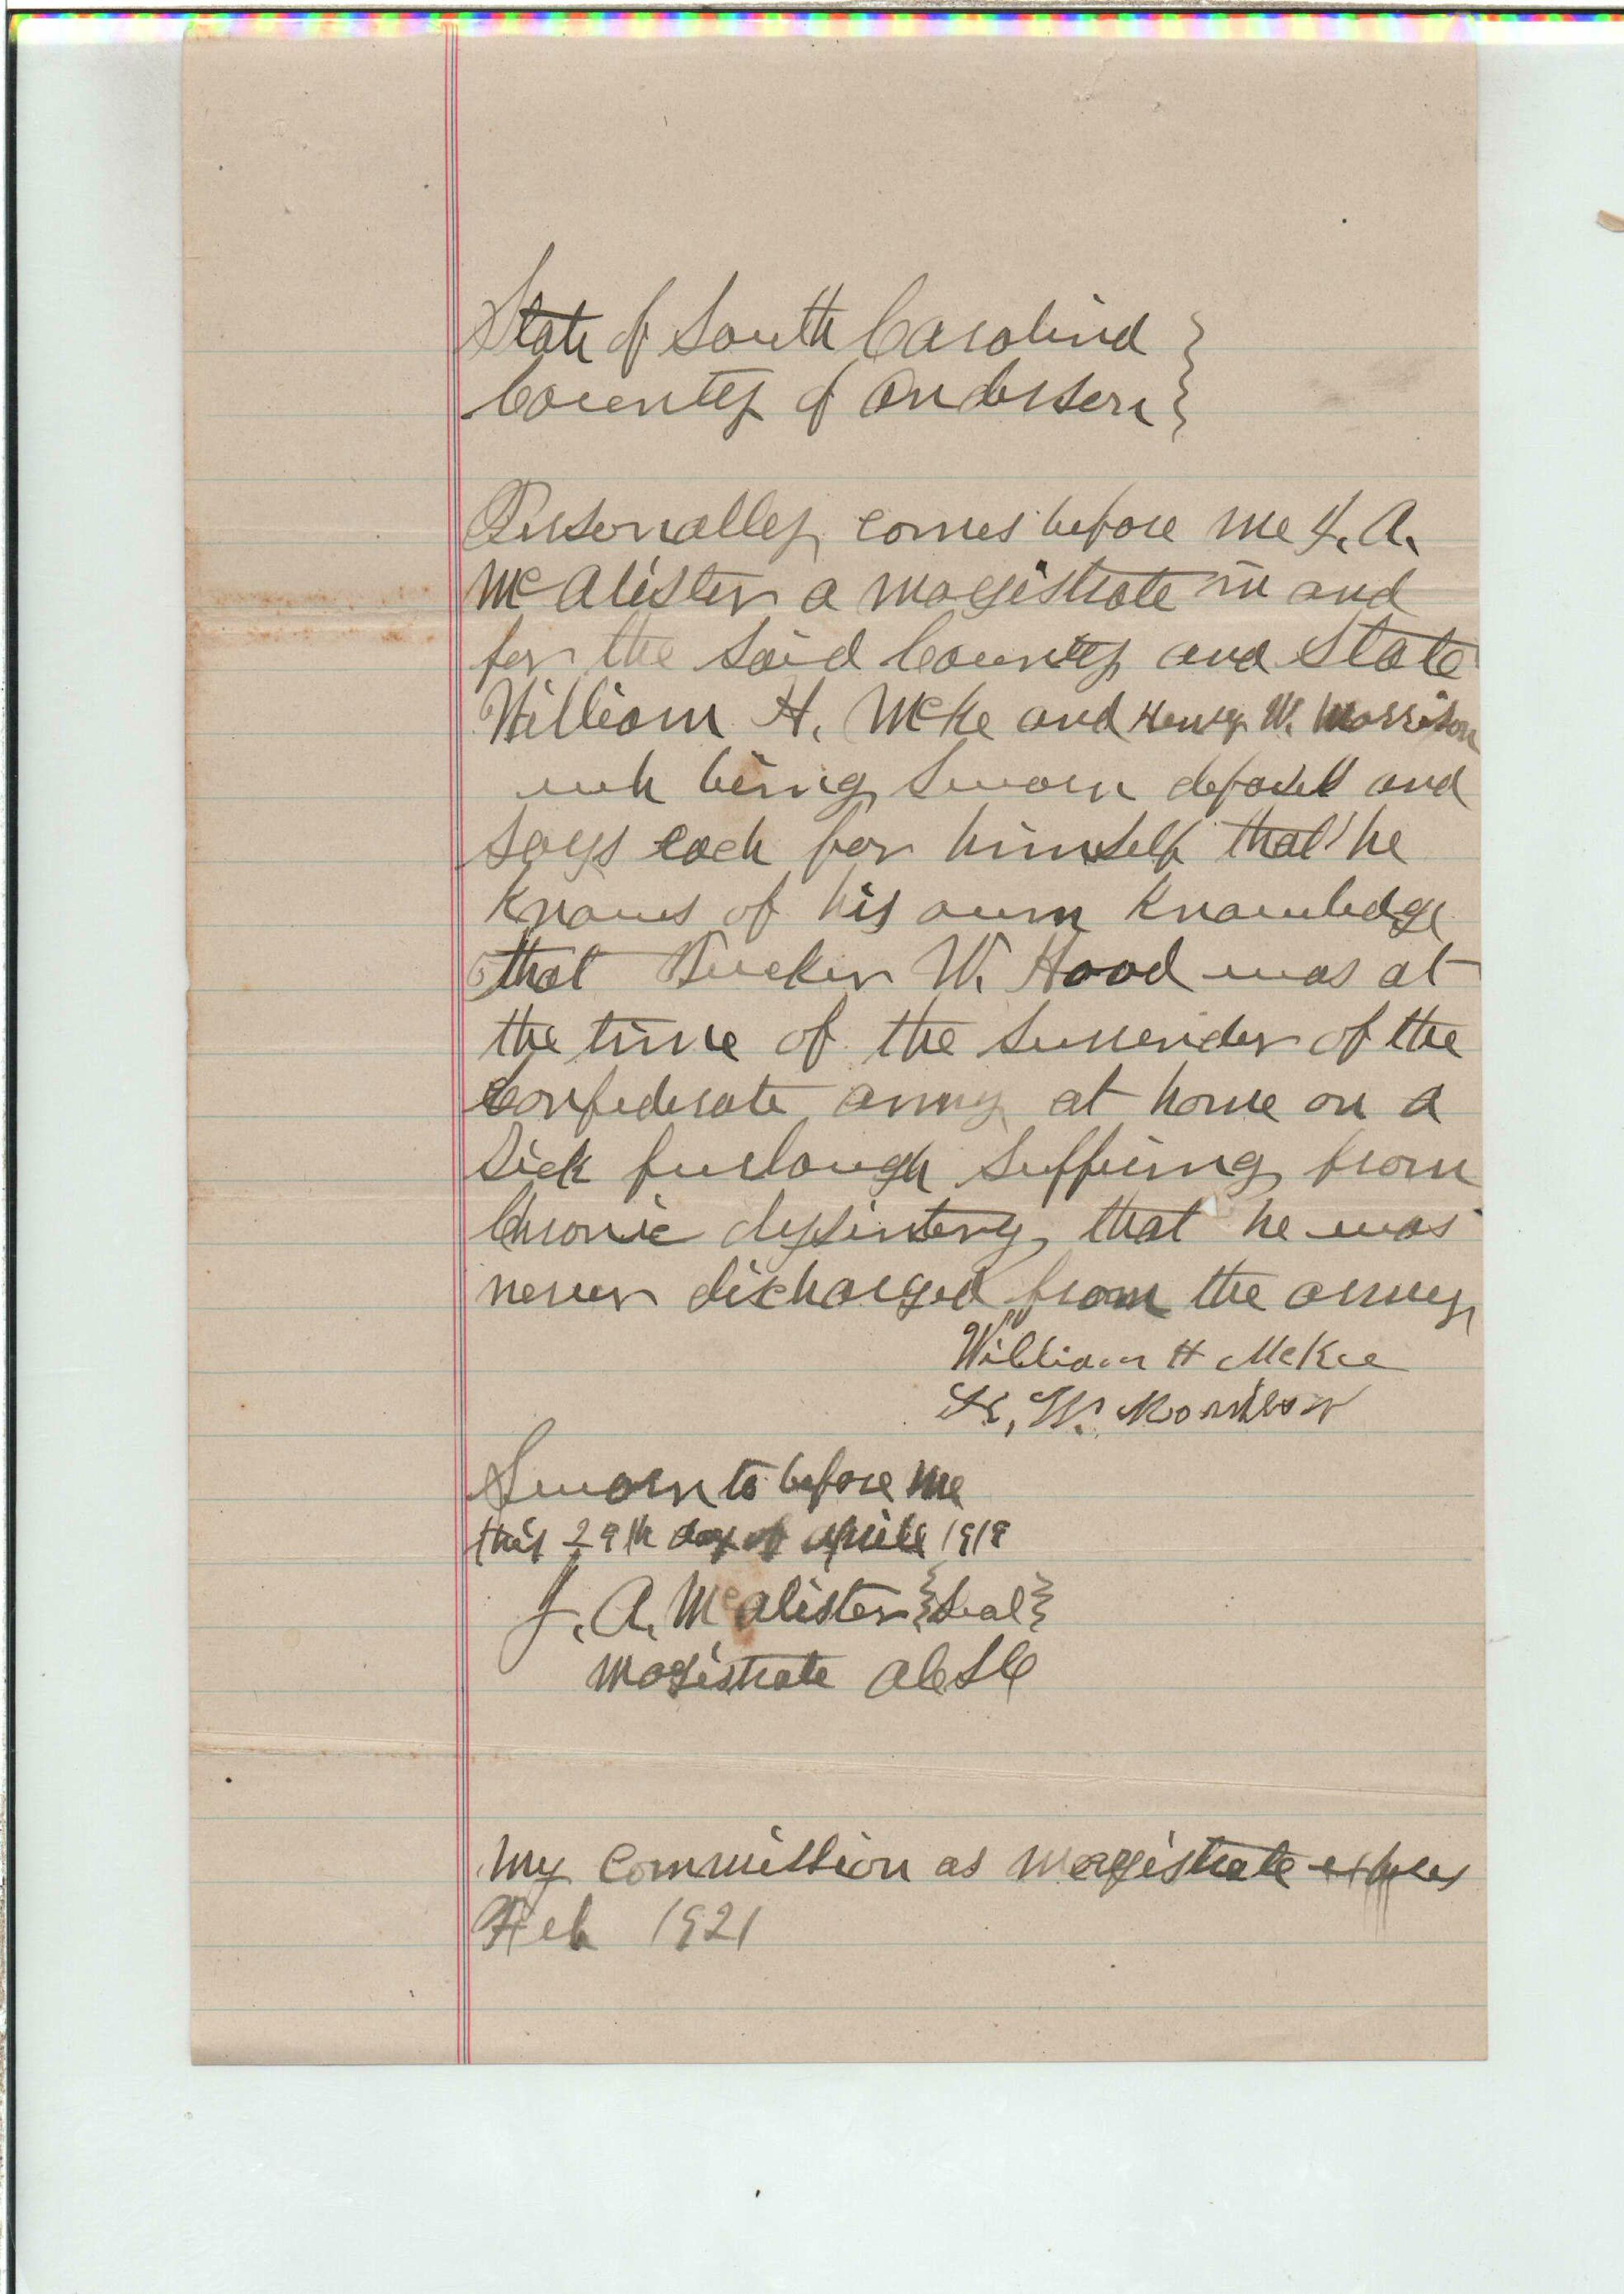 State of South Carolina }
County of Anderson }
Personally comes before me J. A.
McAlister a magistrate in and
for the said County and State
William H. McKe and Henry W. Morrison
who being sworn and
says each for himself that he
knows of his own knowledge
that Tucker W. Hood was at
the time of the surrender of the
Confederate army at home on a
Sick furlough suffering from
Chronic dysintery, that he was
never discharged from the army
William H McKee
H. W. Morrison
Sworn to before me
this 29th day of April 1919
J. A. McAlister {Seal}
Magistrate A C S C
My Commission as magistrate expires
Feb 1921